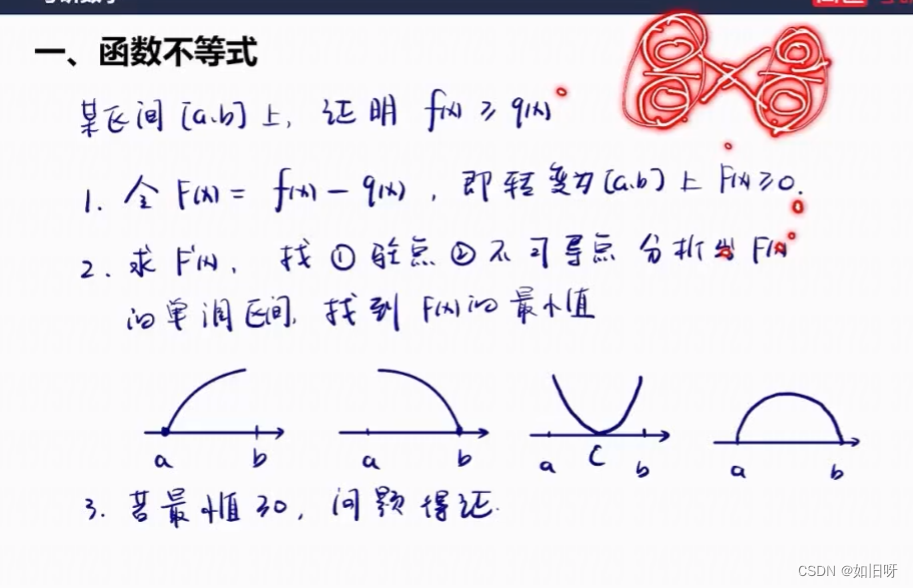 一、函数不等式
某区间[a,b]上，证明 f(x)≥g(x)
1. 令F(x)= f(x)-g(x)，即转变为[a,b]上 F(x)≥0.
2. 求F'(x)，找①驻点②不可导点 分析出F(x)
的单调区间，找到F(x)的最小值
a b a b a C b a b
3. 若最小值≥0，问题得证.
CSDN @如旧呀